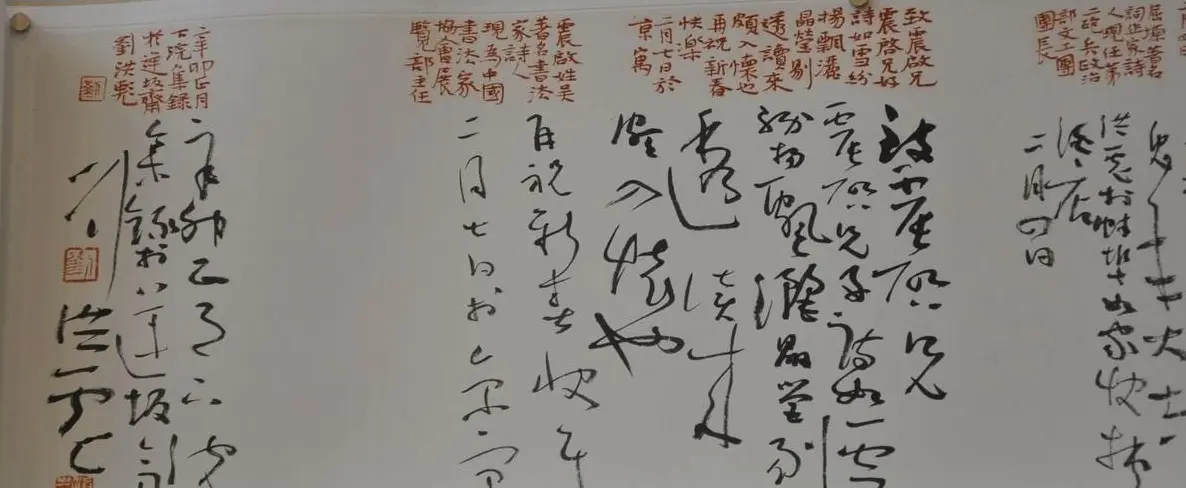 詞作家詩
人現任第
二砲兵政治
部文工團
團長
二月四日
致震啟兄
震啓兄好
詩如雪紛
揚飄灑
晶瑩剔
透讀來
頗入懷也
再祝新春
快樂
二月七日於
京寓
致震啓兄
震啓兄好詩如雪
紛揚飄灑晶瑩剔
透讀來
頗入懷也
再祝新春快樂
二月七日於京寓
震啟姓吳
著名書法
家詩人
現為中國
書法家
協會展
覽部主任
辛卯正月
下浣集錄
於逆坂齋
劉洪彪
劉
辛卯正月下浣
集錄於逆坂齋
劉洪彪
劉